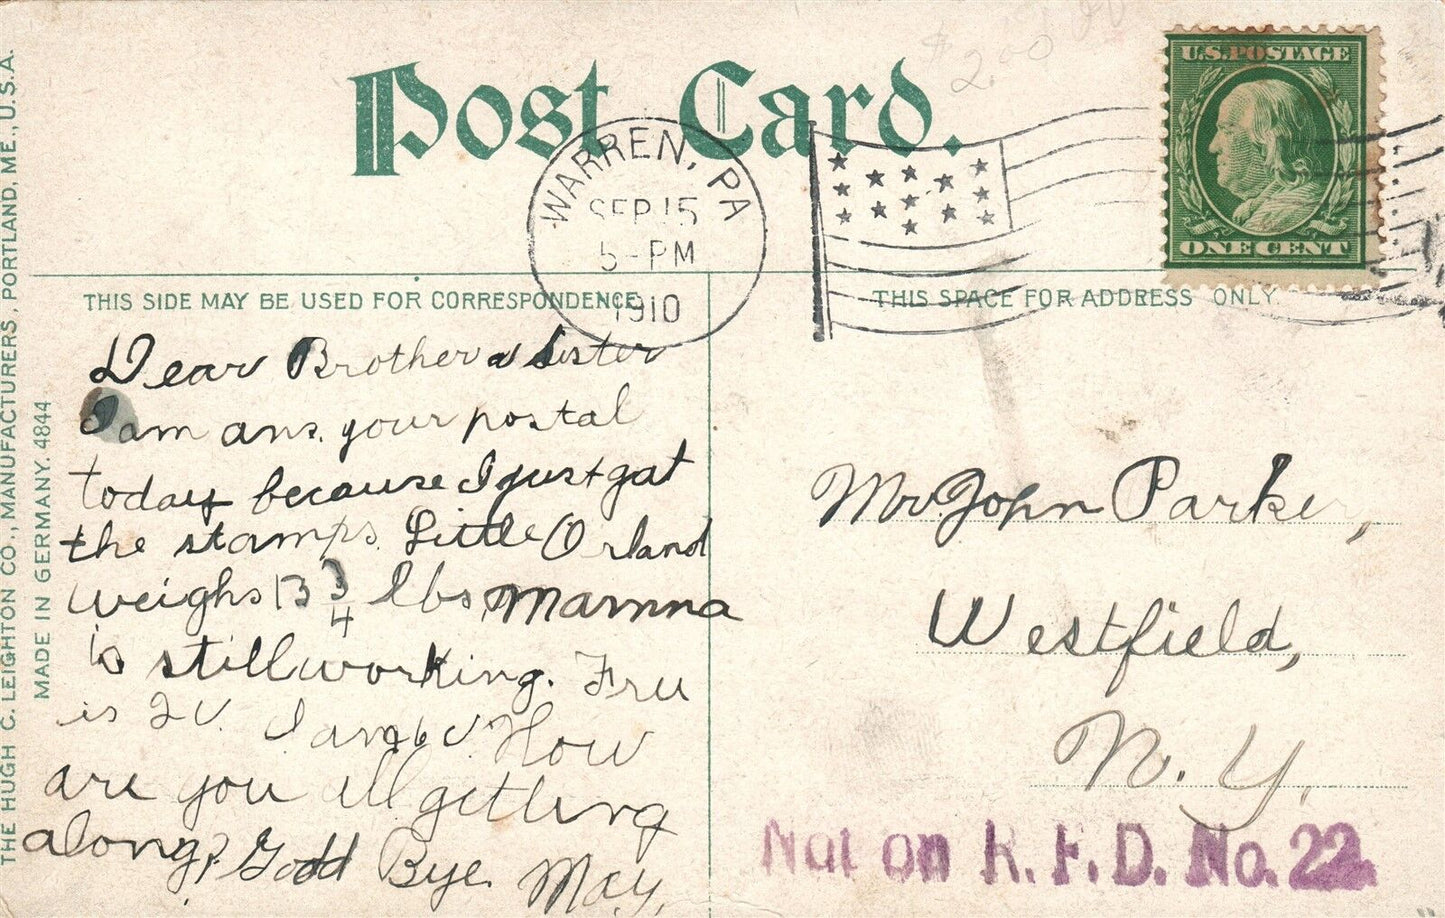 Post Card.
$2.00
U.S. POSTAGE
ONE CENT
WARREN, PA
SEP 15
5-PM
1910
THIS SIDE MAY BE USED FOR CORRESPONDENCE.
THIS SPACE FOR ADDRESS ONLY.
THE HUGH C. LEIGHTON CO., MANUFACTURERS, PORTLAND, ME., U.S.A.
MADE IN GERMANY. 4844
Dear Brother & Sister
I am ans. your postal
today because I just gat
the stamps. Little Orland
weighs 13 3/4 lbs, Mamma
is still working. Fru
is
I am How
are you all getting
along? Godd Bye. May,
Mr. John Parker,
Westfield,
N. Y.
Not on R. F. D. No. 22